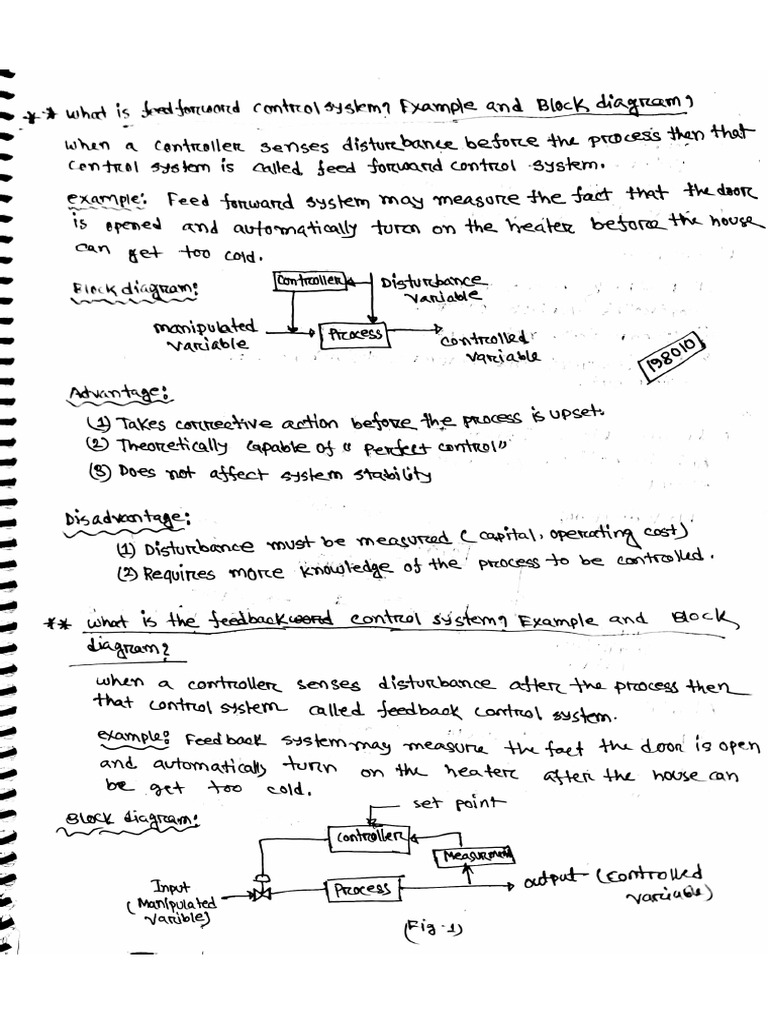 ** What is feed forward control system? Example and Block diagram?
When a controller senses disturbance before the process then that
control system is called feed forward control system.
example: Feed forward system may measure the fact that the door
is opened and automatically turn on the heater before the house
can get too cold.
Block diagram:
Controller
Disturbance
variable
manipulated
variable
Process
controlled
variable
198010
Advantage:
(1) Takes corrective action before the process is upset.
(2) Theoretically capable of "perfect control"
(3) Does not affect system stability
Disadvantage:
(1) Disturbance must be measured (capital, operating cost)
(2) Requires more knowledge of the process to be controlled.
** What is the feedback control system? Example and Block
diagram?
when a controller senses disturbance after the process then
that control system called feedback control system.
example: Feedback system may measure the fact the door is open
and automatically turn on the heater after the house can
be get too cold.
Block diagram:
set point
Controller
Measurement
Input
(Manipulated
Varible)
Process
output (controlled
variable)
(Fig-1)